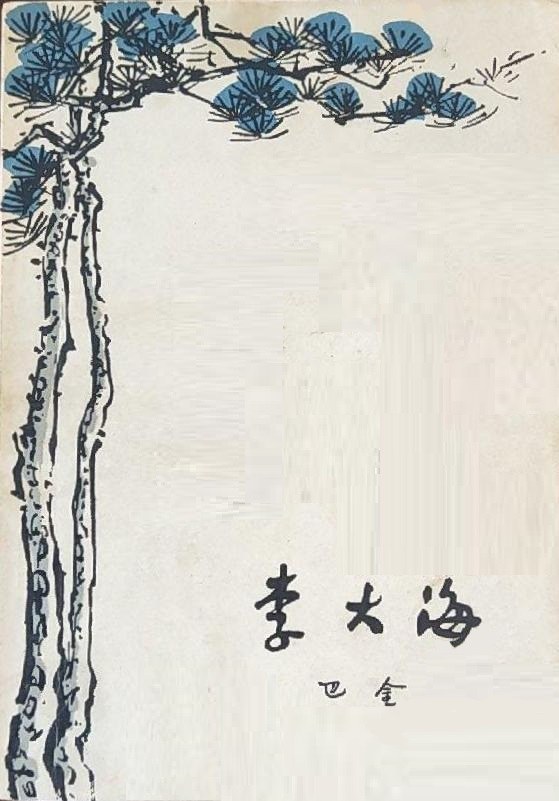 李大海
巴金